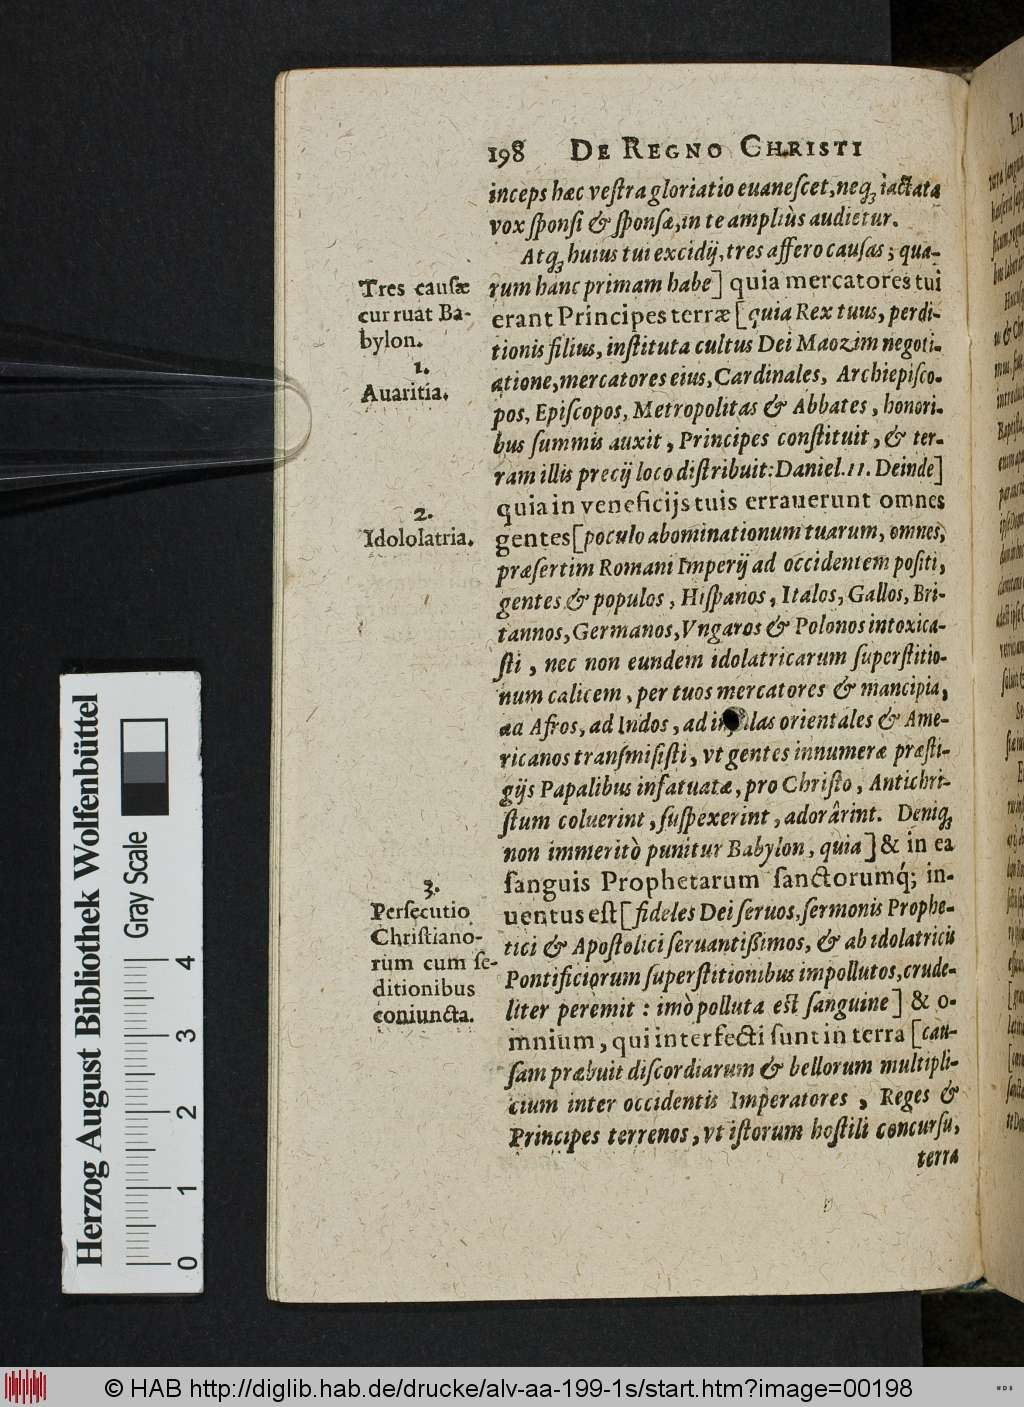 198 DE REGNO CHRISTI
inceps hæc veſtra gloriatio euaneſcet, neqꝫ iactata
vox ſponſi & ſponſæ, in te ampliùs audietur.
Atqꝫ huius tui excidij, tres affero cauſas; qua-
rum hanc primam habe] quia mercatores tui
erant Principes terræ [quia Rex tuus, perdi-
tionis filius, inſtituta cultus Dei Maozim negoti-
atione, mercatores eius, Cardinales, Archiepiſco-
pos, Epiſcopos, Metropolitas & Abbates, honori-
bus ſummis auxit, Principes conſtituit, & ter-
ram illis precij loco diſtribuit: Daniel. 11. Deinde]
quia in veneficijs tuis errauerunt omnes
gentes [poculo abominationum tuarum, omnes,
præſertim Romani Imperij ad occidentem poſiti,
gentes & populos, Hiſpanos, Italos, Gallos, Bri-
tannos, Germanos, Vngaros & Polonos intoxica-
ſti, nec non eundem idolatricarum ſuperſtitio-
num calicem, per tuos mercatores & mancipia,
ad Afros, ad Indos, ad in las orientales & Ame-
ricanos tranſmiſiſti, vt gentes innumeræ præſti-
gijs Papalibus infatuatæ, pro Chriſto, Antichri-
ſtum coluerint, ſuſpexerint, adorârint. Deniqꝫ
non immeritò punitur Babylon, quia] & in ea
ſanguis Prophetarum ſanctorumq́; in-
uentus eſt [fideles Dei ſeruos, ſermonis Prophe-
tici & Apoſtolici ſeruantiſsimos, & ab idolatricis
Pontificiorum ſuperſtitionibus impollutos, crude-
liter peremit: imò polluta eſt ſanguine] & o-
mnium, qui interfecti ſunt in terra [cau-
ſam præbuit diſcordiarum & bellorum multipli-
cium inter occidentis Imperatores, Reges &
Principes terrenos, vt iſtorum hoſtili concurſu,
terra
Tres cauſæ
cur ruat Ba-
bylon.
1.
Auaritia.
2.
Idololatria.
3.
Perſecutio
Chriſtiano-
rum cum ſe-
ditionibus
coniuncta.
Herzog August Bibliothek Wolfenbüttel
Gray Scale
0 1 2 3 4
© HAB http://diglib.hab.de/drucke/alv-aa-199-1s/start.htm?image=00198